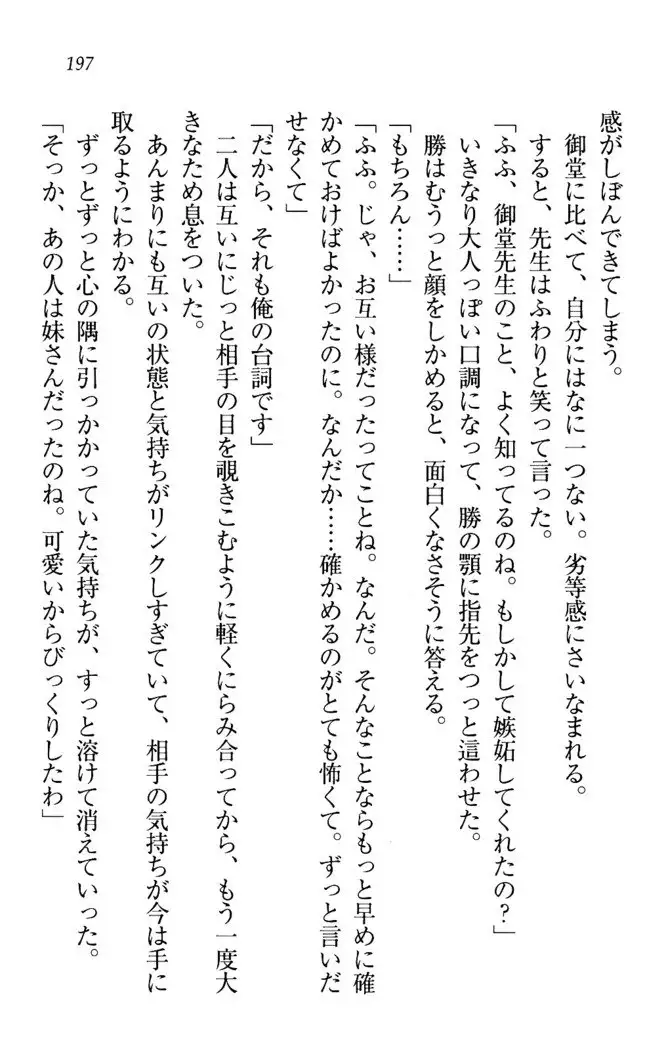 197
感がしぼんできてしまう。
御堂に比べて、自分にはなに一つない。劣等感にさいなまれる。
すると、先生はふわりと笑って言った。
「ふふ、御堂先生のこと、よく知ってるのね。もしかして嫉妬してくれたの？」
いきなり大人っぽい口調になって、勝の顎に指先をつっと這わせた。
勝はむうっと顔をしかめると、面白くなさそうに答える。
「もちろん……」
「ふふ。じゃ、お互い様だったってことね。なんだ。そんなことならもっと早めに確
かめておけばよかったのに。なんだか……確かめるのがとても怖くて。ずっと言いだ
せなくて」
「だから、それも俺の台詞です」
二人は互いにじっと相手の目を覗きこむように軽くにらみ合ってから、もう一度大
きなため息をついた。
あんまりにも互いの状態と気持ちがリンクしすぎていて、相手の気持ちが今は手に
取るようにわかる。
ずっとずっと心の隅に引っかかっていた気持ちが、すっと溶けて消えていった。
「そっか、あの人は妹さんだったのね。可愛いからびっくりしたわ」